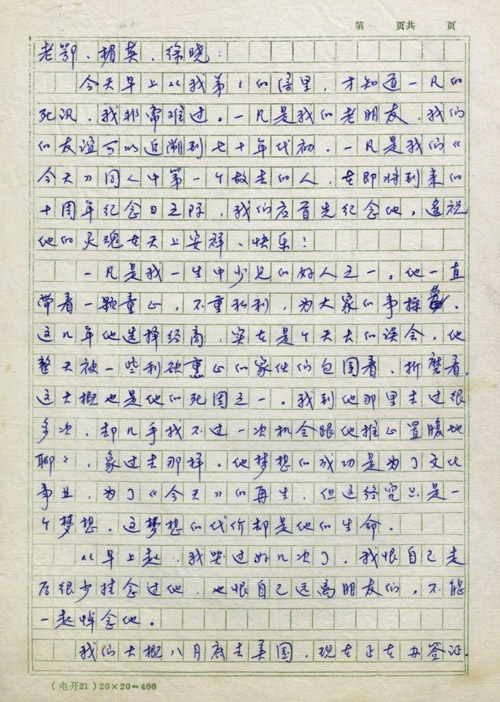 第 页共 页
老鄂、楣英、徐晓:
今天早上从我弟弟的信里,才知道一凡的
死讯。我非常难过。一凡是我的老朋友,我们
的友谊可以追溯到七十年代初。一凡是我们《
今天》同人中第一个故去的人,在即将到来的
十周年纪念日之际,我们应首先纪念他,遥祝
他的灵魂在天上安祥、快乐!
一凡是我一生中少见的好人之一。他一直
带着一颗童心,不重私利,为大家的事操劳。
这几年他选择经商,实在是个天大的误会。他
整天被一些利欲熏心的家伙们包围着,折磨着,
这大概也是他的死因之一。我到他那里去过很
多次,却几乎找不过一次机会跟他推心置腹地
聊聊,象过去那样。他梦想的成功是为了文化
事业,为了《今天》的再生。但这终究只是一
个梦想。这梦想的代价却是他的生命。
从早上起,我哭过好几次了,我恨自己走
后很少挂念过他,也恨自己远离朋友们,不能
一起悼念他。
我们大概八月底去美国,现在正在办签证。
(电开21)20×20=400